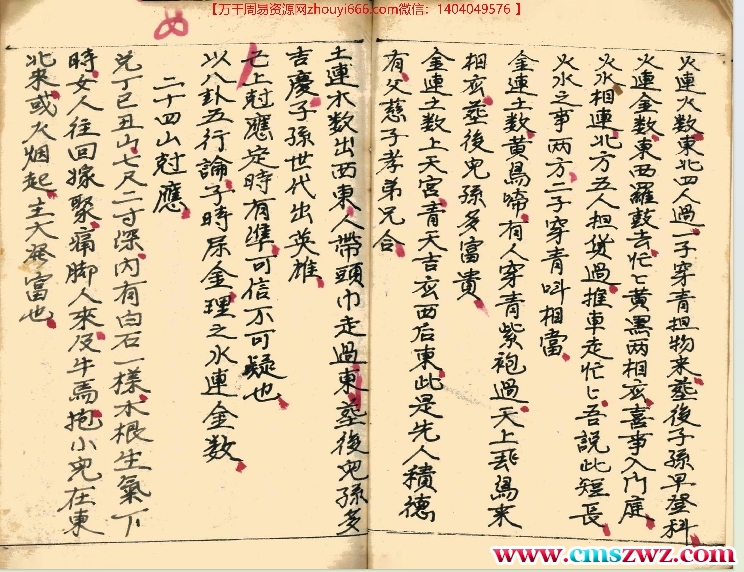 【万千周易资源网zhouyi666.com微信：1404049576 】
火連火数東北四人過一子穿青担物来塟後子孫早登科
火連金数東西羅鼓去忙〻黄黑两相交喜事入门庭
火水相連北方五人担貨過推車走忙〻吾説此短長
火水之事两方二子穿青叫相當
金連土数黄鳥啼有人穿青紫袍過天上飛鳥来
相交塟後兒孫多富貴
金連土数上天宫青天吉交西后東此是先人積德
有父慈子孝弟兄合
土連木数出西東人帶頭巾走過東塟後兒孫多
吉慶子孫世代出英雄
已上尅應定時有準可信不可疑也
以八卦五行論子時尿金理之水連金数
二十四山尅應
兑丁巳丑山七尺二寸深内有白石一樣木根生氣下
時女人往回嫁聚痛脚人來及牛馬抱小兒在東
北來或火烟起主大發富也
www.cmszwz.com